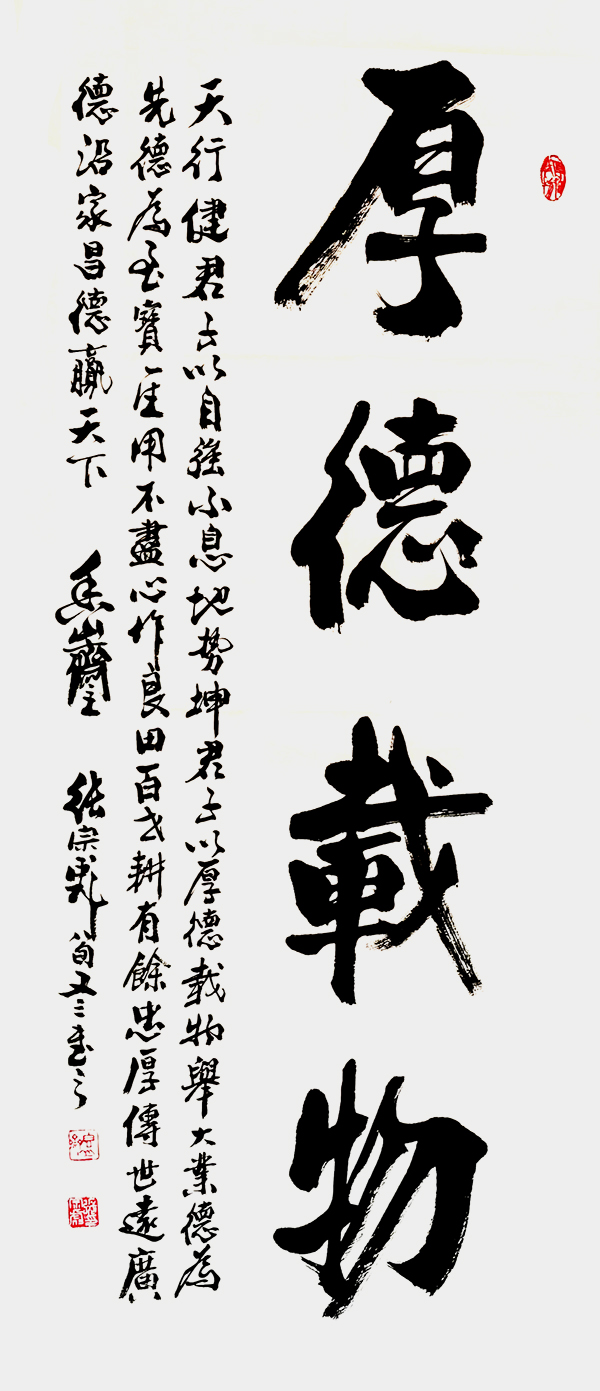 厚德載物
天行健君子以自強不息地势坤君子以厚德載物舉大業德為
先德為至寶一生用不盡心作良田百世耕有餘忠厚傳世遠廣
德沿家昌德贏天下
香山齋 張宗彪 八旬又三書之